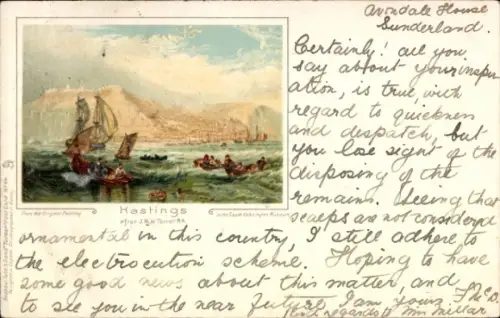 Avondale House
Sunderland.
Certainly! all you
say about your inspir
ation, is true, with
regard to quickness
and despatch, but
you lose sight of the
disposing of the
remains. Seeing that
scalps are not considered
ornamental in this country, I still adhere to
the electrocution scheme. Hoping to have
some good news about this matter, and
to see you in the near future, I am yours,
With regards to Mrs Millar
From the Original Painting
Hastings
after J.M.W. Turner R.A.
in the South Kensington Museum